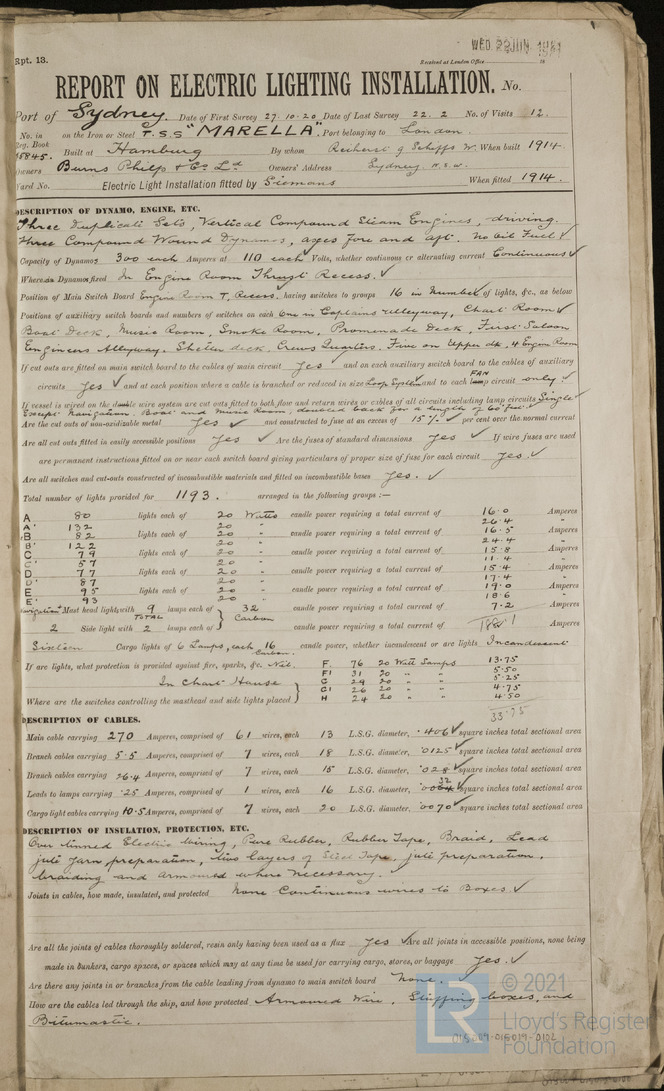 Rpt. 13.
WED. 22 JUN. 1921
Received at London Office
REPORT ON ELECTRIC LIGHTING INSTALLATION. No.
Port of Sydney. Date of First Survey 27.10.20 Date of Last Survey 22.2 No. of Visits 12.
No. in Reg. Book on the Iron or Steel T.S.S "MARELLA". Port belonging to London.
Built at Hamburg By whom When built 1914.
Owners Burns Philp & Co Ltd Owners' Address Sydney N.S.W.
Yard No. Electric Light Installation fitted by Siemens When fitted 1914.
DESCRIPTION OF DYNAMO, ENGINE, ETC.
Three Duplicate Sets, Vertical Compound Steam Engines, driving.
Three Compound Wound Dynamos, axes fore and aft. No oil Fuel
Capacity of Dynamos 300 each Amperes at 110 each Volts, whether continuous or alternating current Continuous
Where is Dynamo fixed In Engine Room Thrust Recess.
Position of Main Switch Board Engine Room T. Recess. having switches to groups 16 in Number of lights, &c., as below
Positions of auxiliary switch boards and numbers of switches on each One in Captains alleyway, Chart Room
Boat Deck, Music Room, Smoke Room, Promenade Deck, First Saloon
Engineers Alleyway. Shelter deck. Crews Quarters. Five on Upper dk, 4 Engine Room
If cut outs are fitted on main switch board to the cables of main circuit yes and on each auxiliary switch board to the cables of auxiliary
circuits yes and at each position where a cable is branched or reduced in size Loop System and to each FAN lamp circuit only.
If vessel is wired on the double wire system are cut outs fitted to both flow and return wires or cables of all circuits including lamp circuits Single
Except Navigation. Boat and Music Room, doubled back for a length of 60 feet
Are the cut outs of non-oxidizable metal yes and constructed to fuse at an excess of 15% per cent over the normal current
Are all cut outs fitted in easily accessible positions yes Are the fuses of standard dimensions yes If wire fuses are used
are permanent instructions fitted on or near each switch board giving particulars of proper size of fuse for each circuit yes.
Are all switches and cut-outs constructed of incombustible materials and fitted on incombustible bases yes.
Total number of lights provided for 1193. arranged in the following groups :—
A 80 lights each of 20 Watts candle power requiring a total current of 16.0 Amperes
A' 132 20 " 26.4 "
B 82 lights each of 20 " candle power requiring a total current of 16.5 Amperes
B' 122 20 " 24.4 "
C 79 lights each of 20 " candle power requiring a total current of 15.8 Amperes
C' 57 20 " 11.4 "
D 77 lights each of 20 " candle power requiring a total current of 15.4 Amperes
D' 87 20 " 17.4 "
E 95 lights each of 20 " candle power requiring a total current of 19.0 Amperes
E' 93 20 " 18.6 "
Navigation Mast head light with 9 lamps each of 32 candle power requiring a total current of 7.2 Amperes
2 Side light with TOTAL 2 lamps each of Carbon candle power requiring a total current of Amperes
Sixteen Cargo lights of 6 Lamps, each 16 Carbon. candle power, whether incandescent or arc lights Incandescent
If arc lights, what protection is provided against fire, sparks, &c. Nil. F. 76 20 Watt Lamps 13.75
F1 31 20 " " 5.50
In Chart House G 29 20 " " 5.25
G1 26 20 " " 4.75
Where are the switches controlling the masthead and side lights placed H 24 20 " " 4.50
33.75
DESCRIPTION OF CABLES.
Main cable carrying 270 Amperes, comprised of 61 wires, each 13 L.S.G. diameter, .406 square inches total sectional area
Branch cables carrying 5.5 Amperes, comprised of 7 wires, each 18 L.S.G. diameter, .0125 square inches total sectional area
Branch cables carrying 26.4 Amperes, comprised of 7 wires, each 15 L.S.G. diameter, .028 square inches total sectional area
Leads to lamps carrying .25 Amperes, comprised of 1 wires, each 16 L.S.G. diameter, square inches total sectional area
Cargo light cables carrying 10.5 Amperes, comprised of 7 wires, each 20 L.S.G. diameter, .0070 square inches total sectional area
DESCRIPTION OF INSULATION, PROTECTION, ETC.
Over tinned Electric wiring, Pure Rubber, Rubber Tape, Braid, Lead
jute yarn preparation, two layers of Steel Tape, jute preparation.
braiding and armoured where necessary.
Joints in cables, how made, insulated, and protected None Continuous wires to Boxes
Are all the joints of cables thoroughly soldered, resin only having been used as a flux yes Are all joints in accessible positions, none being
made in bunkers, cargo spaces, or spaces which may at any time be used for carrying cargo, stores, or baggage yes.
Are there any joints in or branches from the cable leading from dynamo to main switch board None.
How are the cables led through the ship, and how protected Armoured Wire. Stuffing boxes, and
Bitumastic.
LR
© 2021
Lloyd's Register
Foundation
015009-015019-0102